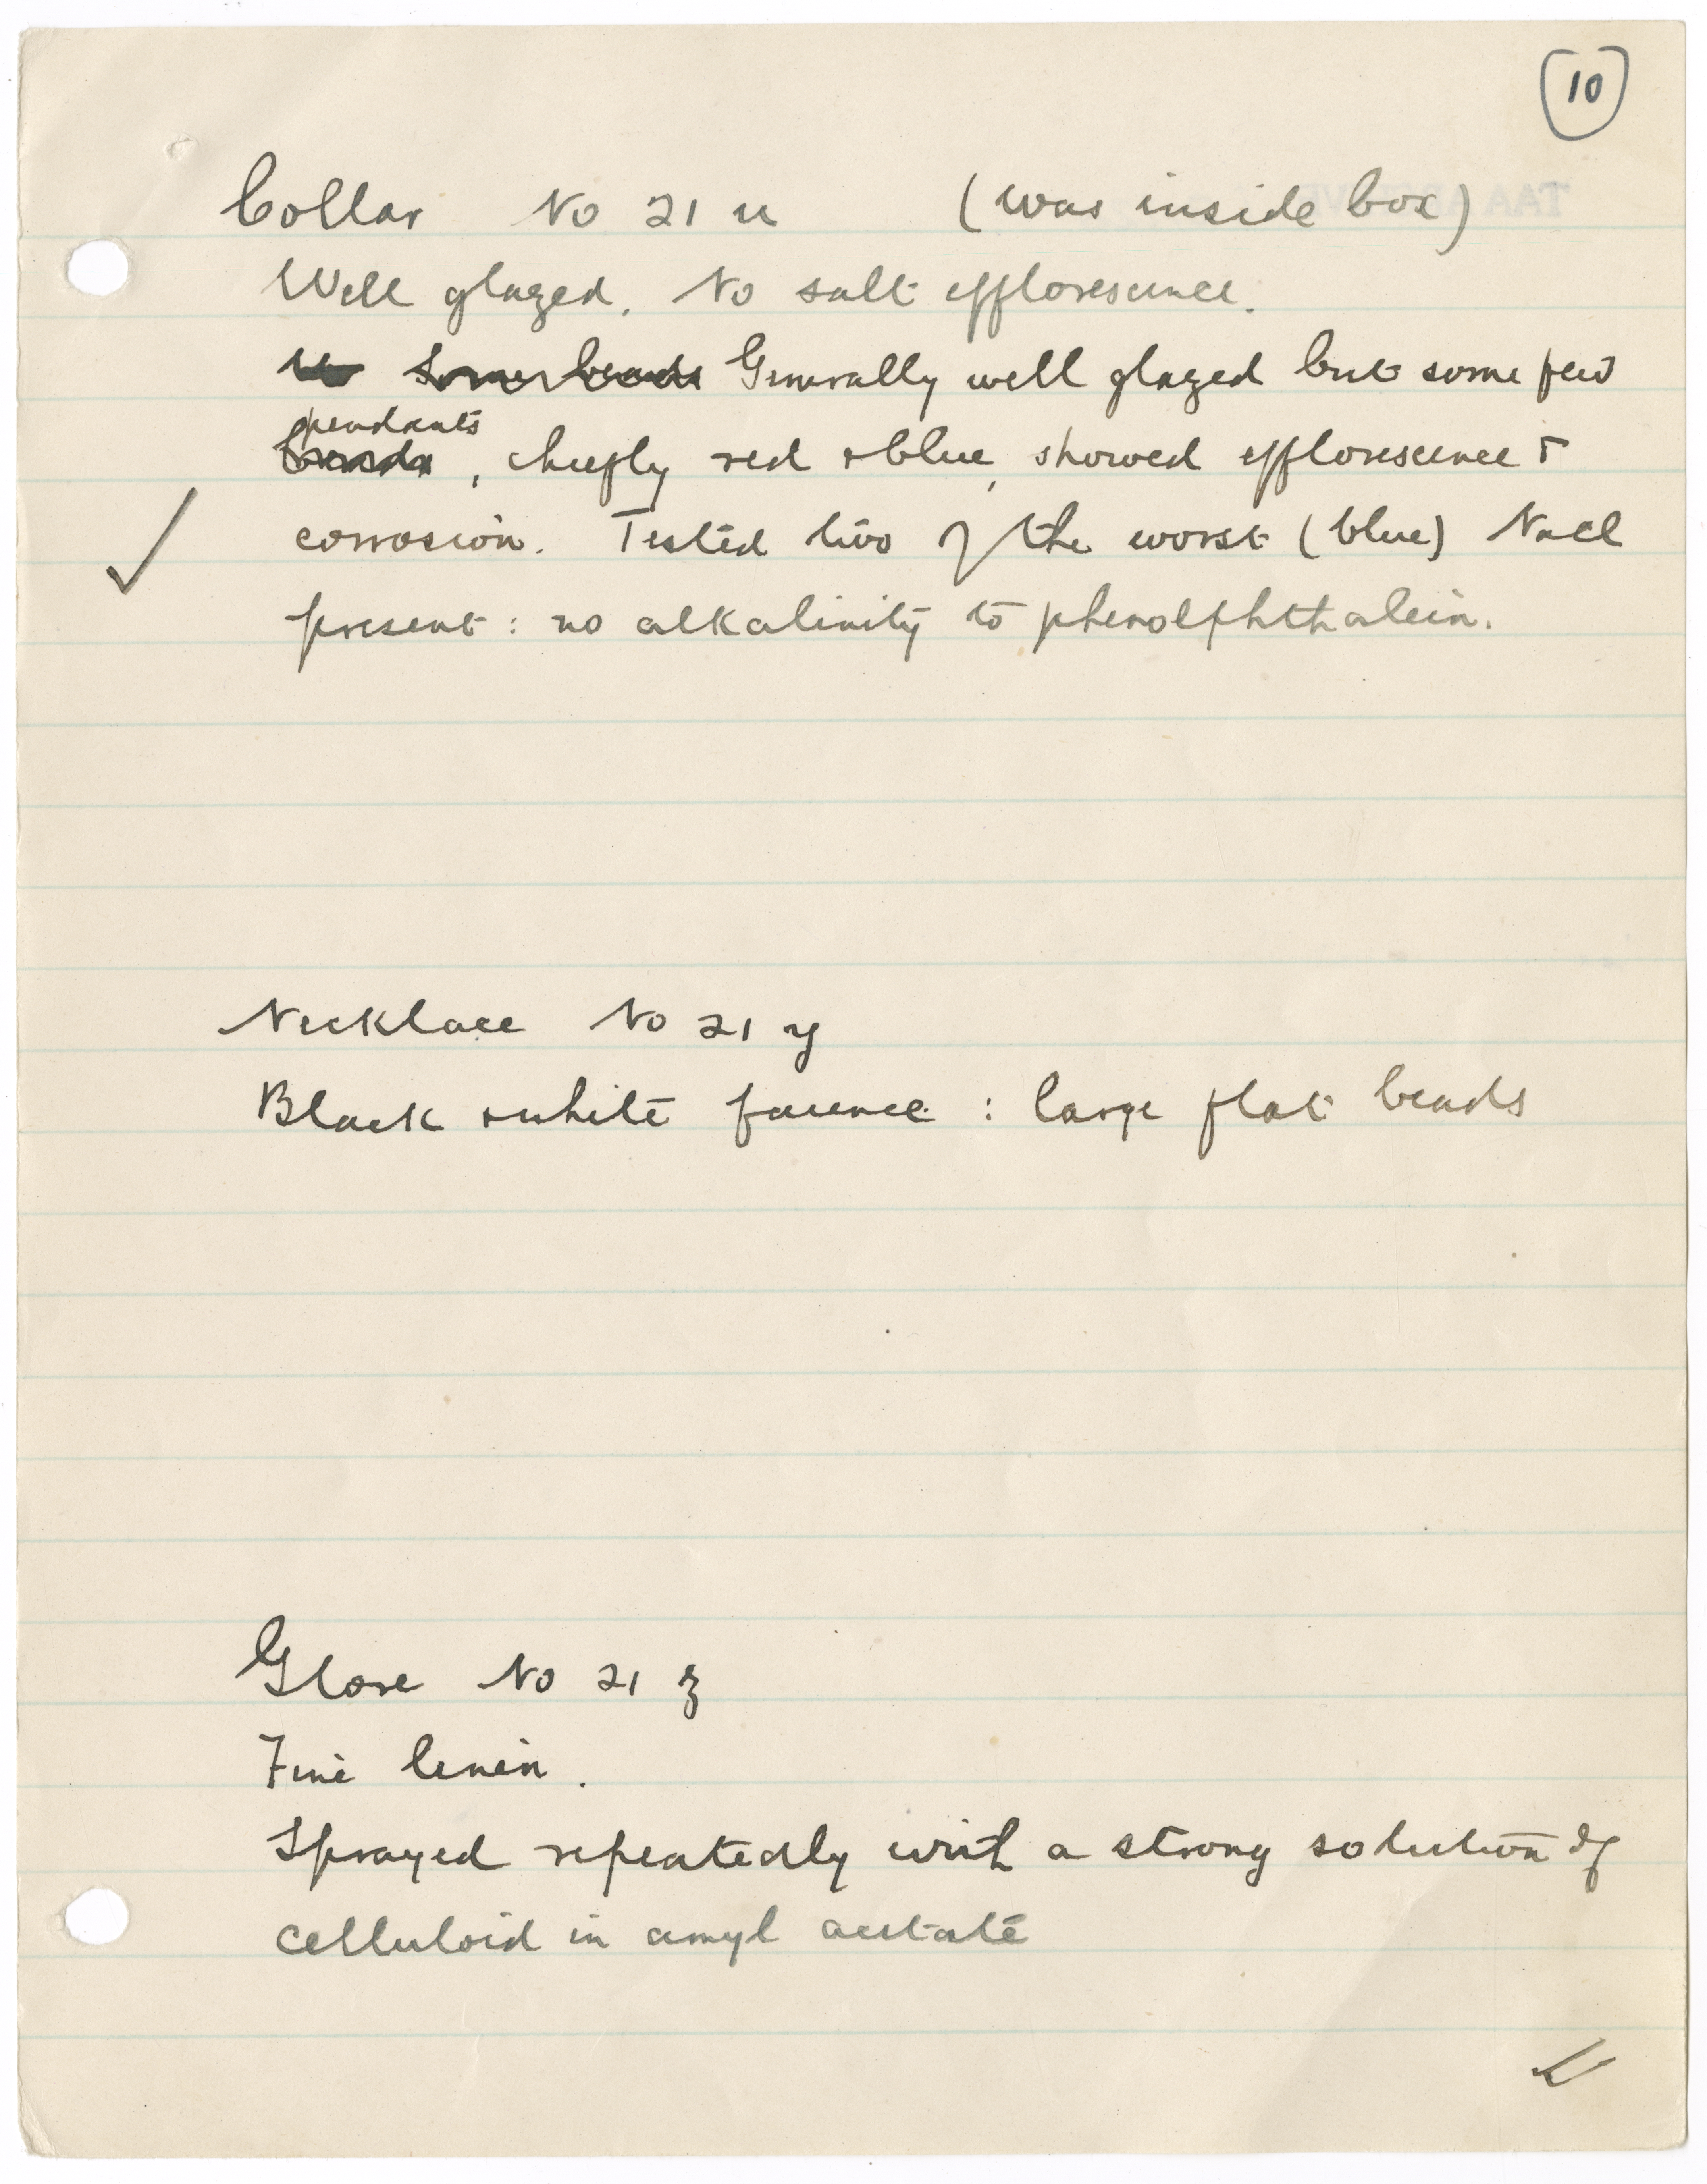 10
Collar No 21 u (was inside box)
Well glazed. No salt efflorescence.
Some beads Generally well glazed but some few
pendants
beads, chiefly red & blue, showed efflorescence &
corrosion. Tested two of the worst (blue) NaCl
present: no alkalinity to phenolphthalein.
Necklace No 21 y
Black & white faience : large flat beads
Glove No 21 z
Fine linen.
Sprayed repeatedly with a strong solution of
celluloid in amyl acetate